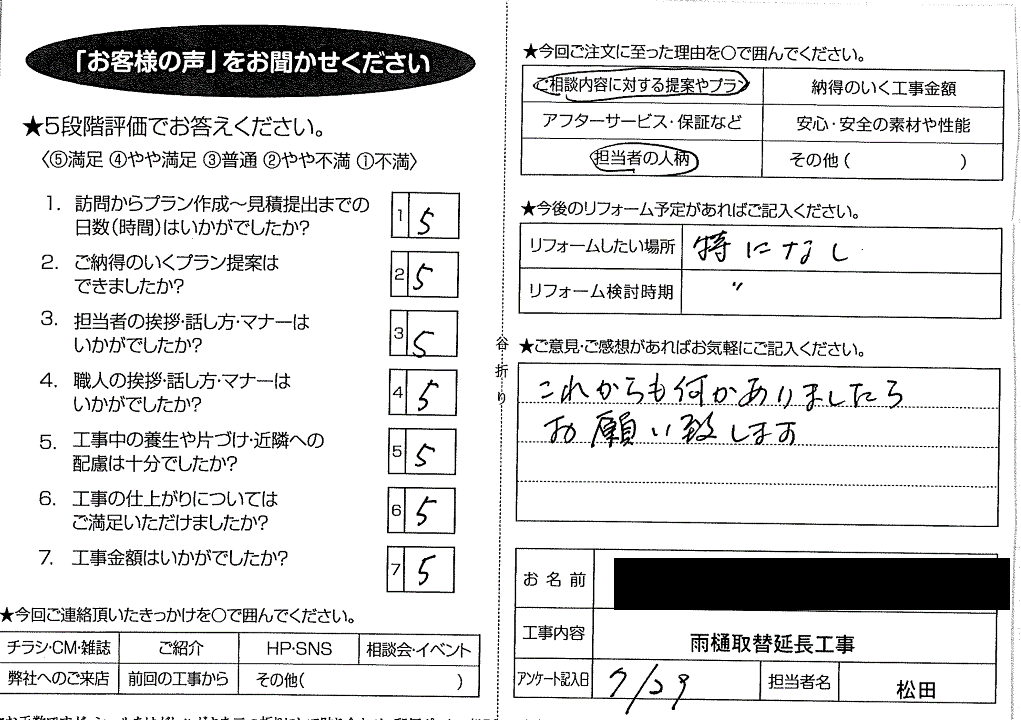 「お客様の声」をお聞かせください
★5段階評価でお答えください。
〈⑤満足 ④やや満足 ③普通 ②やや不満 ①不満〉
1. 訪問からプラン作成〜見積提出までの
日数(時間)はいかがでしたか?
1 5
2. ご納得のいくプラン提案は
できましたか?
2 5
3. 担当者の挨拶・話し方・マナーは
いかがでしたか?
3 5
4. 職人の挨拶・話し方・マナーは
いかがでしたか?
4 5
5. 工事中の養生や片づけ・近隣への
配慮は十分でしたか?
5 5
6. 工事の仕上がりについては
ご満足いただけましたか?
6 5
7. 工事金額はいかがでしたか?
7 5
★今回ご連絡頂いたきっかけを〇で囲んでください。
チラシ・CM・雑誌 ご紹介 HP・SNS 相談会・イベント
弊社へのご来店 前回の工事から その他( )
谷折り
★今回ご注文に至った理由を〇で囲んでください。
ご相談内容に対する提案やプラン 納得のいく工事金額
アフターサービス・保証など 安心・安全の素材や性能
担当者の人柄 その他( )
★今後のリフォーム予定があればご記入ください。
リフォームしたい場所 特になし
リフォーム検討時期 〃
★ご意見・ご感想があればお気軽にご記入ください。
これからも何かありましたら
お願い致します
お名前
工事内容 雨樋取替延長工事
アンケート記入日 7/29 担当者名 松田